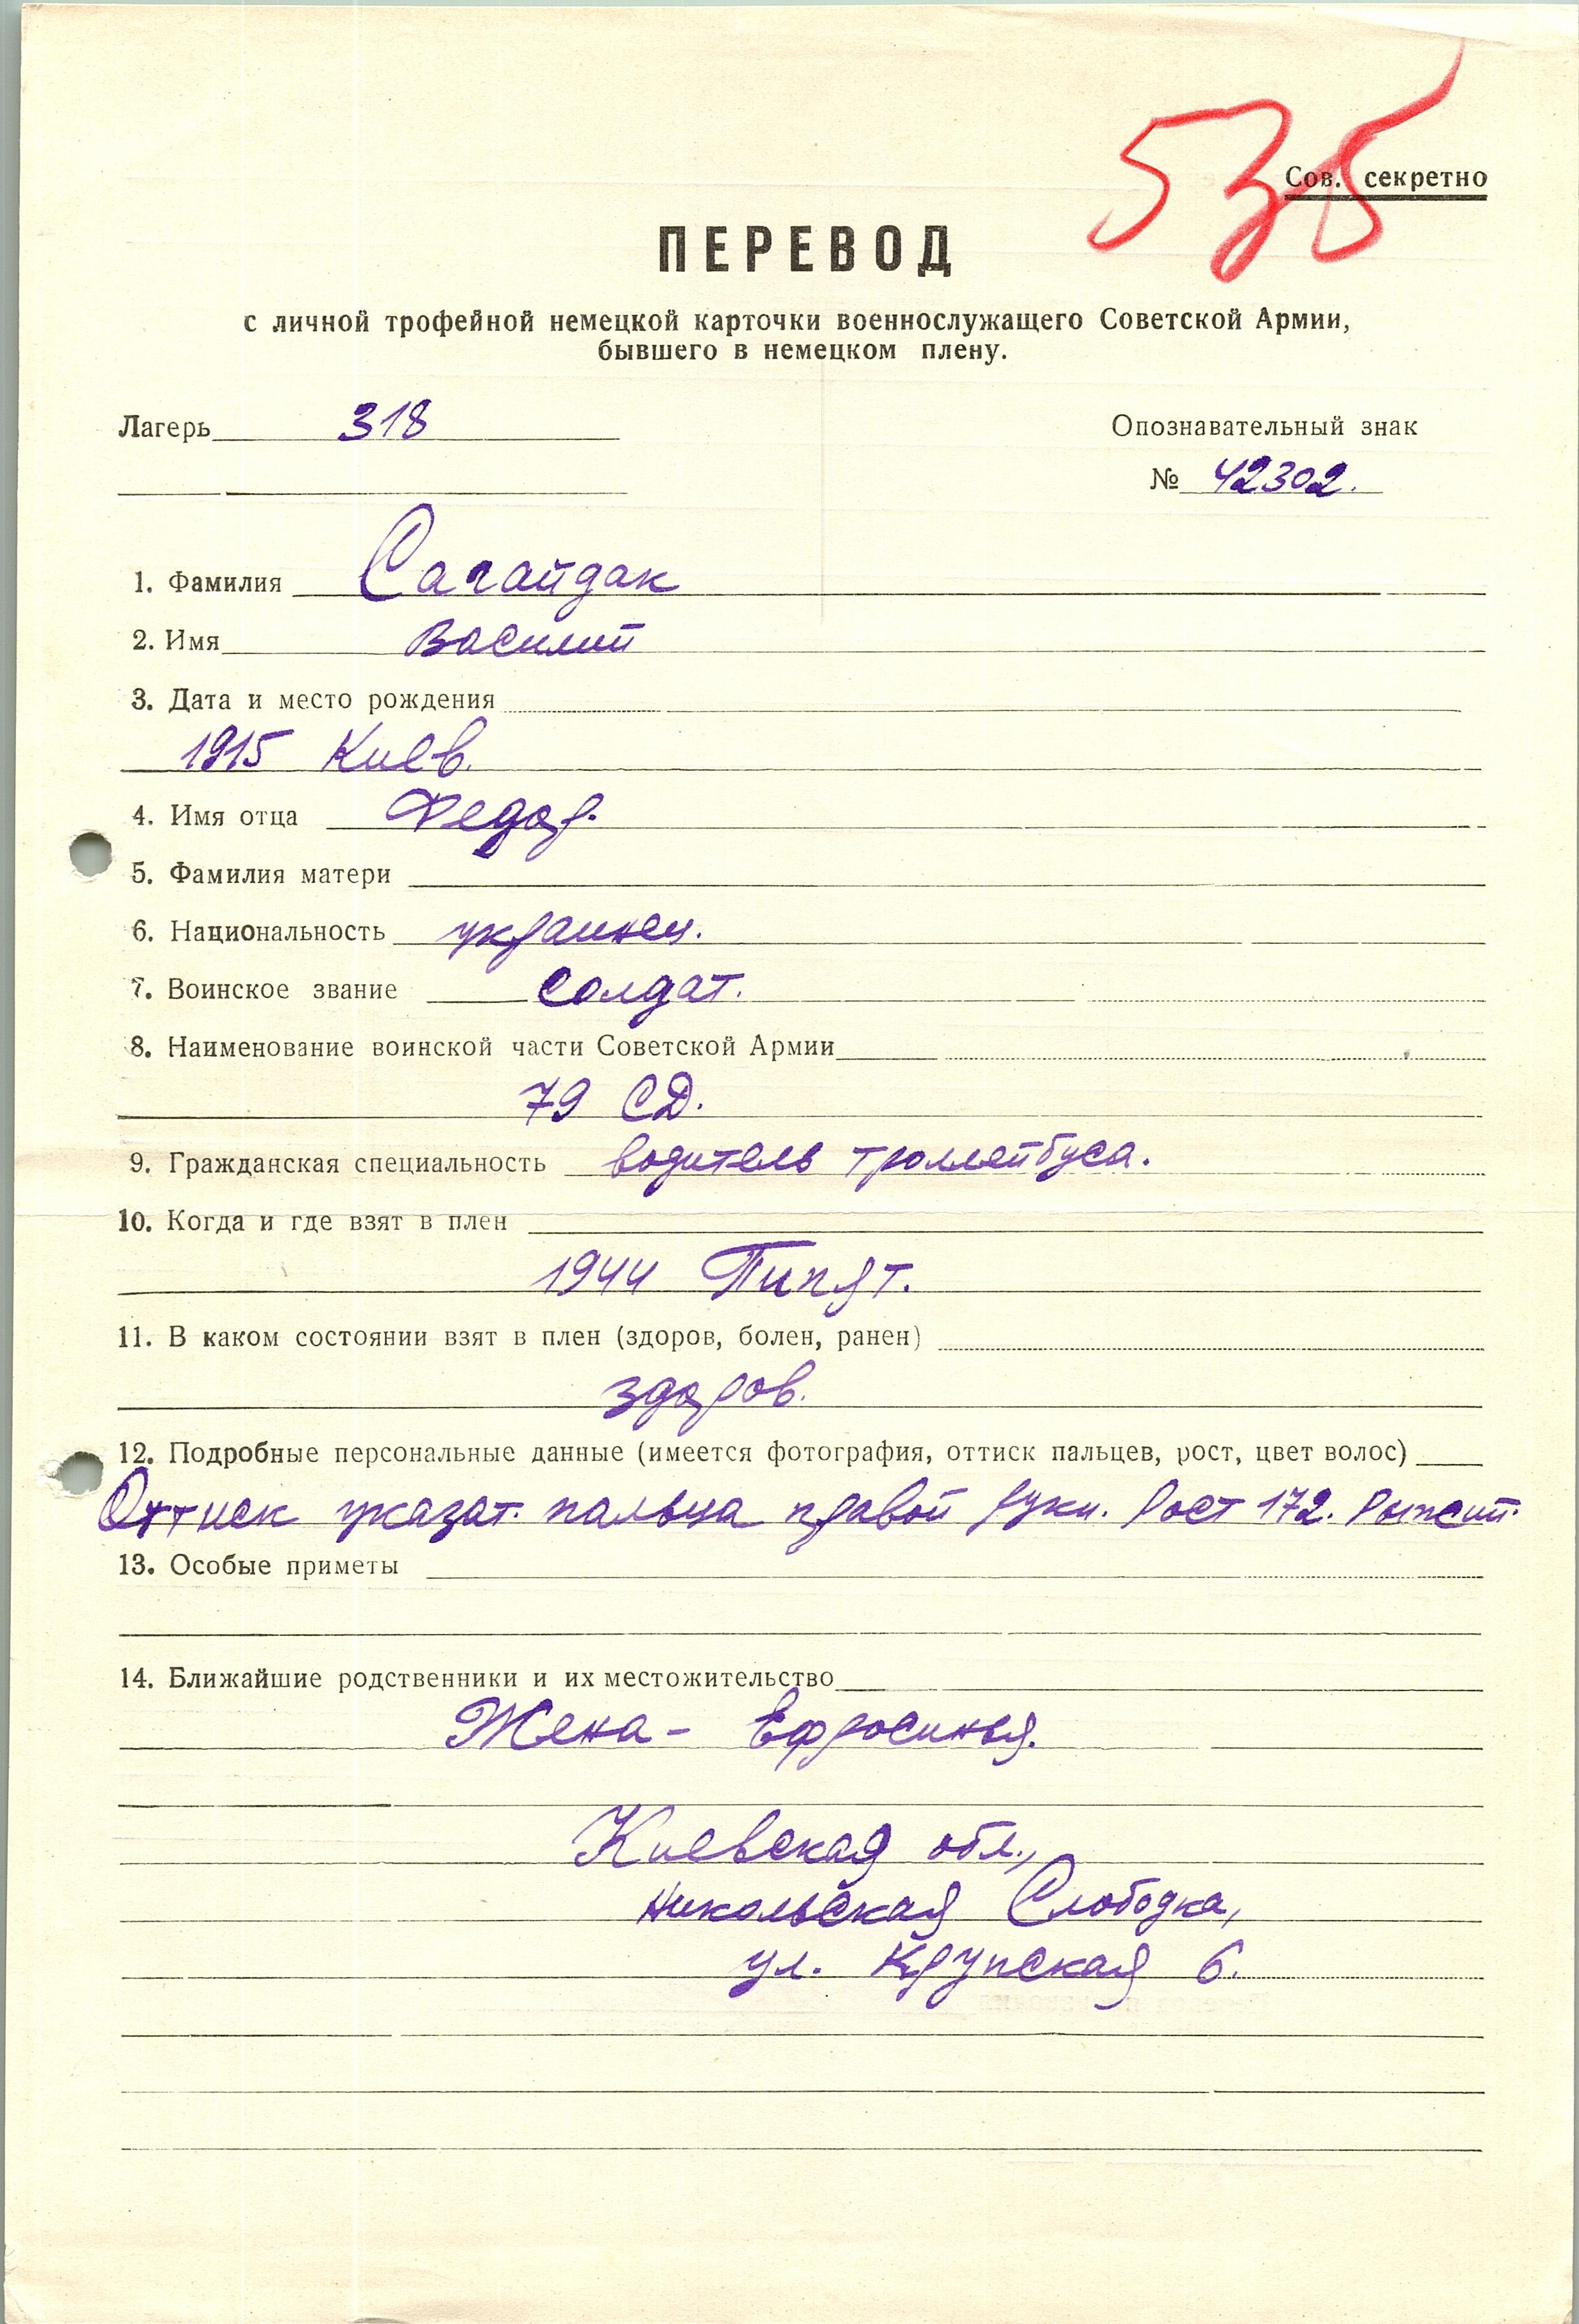 535
Сов. секретно
ПЕРЕВОД
с личной трофейной немецкой карточки военнослужащего Советской Армии,
бывшего в немецком плену.
Лагерь 318
Опознавательный знак
№ 42302.
1. Фамилия Сагайдак
2. Имя Василий
3. Дата и место рождения
1915 Киев.
4. Имя отца Федор.
5. Фамилия матери
6. Национальность украинец.
7. Воинское звание солдат.
8. Наименование воинской части Советской Армии
79 СД.
9. Гражданская специальность водитель троллейбуса.
10. Когда и где взят в плен
1944 Пипят.
11. В каком состоянии взят в плен (здоров, болен, ранен)
здоров.
12. Подробные персональные данные (имеется фотография, оттиск пальцев, рост, цвет волос)
Оттиск указат. пальца правой руки. Рост 172. Рыжий.
13. Особые приметы
14. Ближайшие родственники и их местожительство
Жена - Ефросинья.
Киевская обл.,
Никольская Слободка,
ул. Крупская 6.